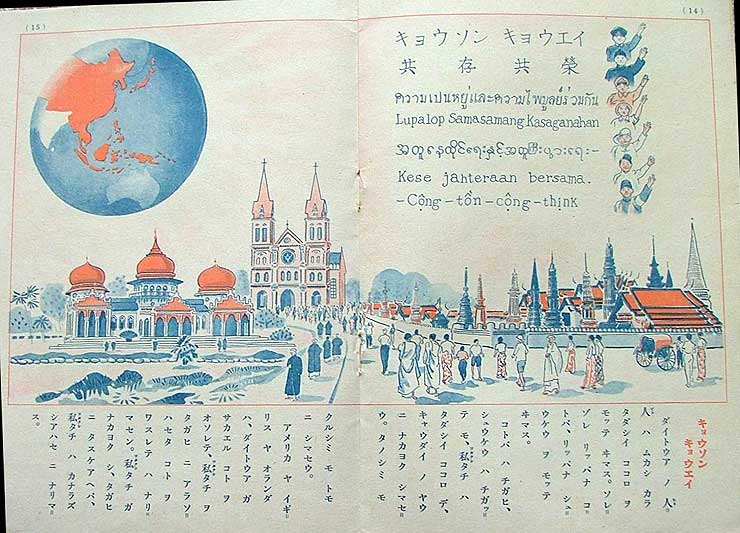 (14)
キョウソン キョウエイ
共 存 共 榮
ความเปนหยู่และความไพบูลย์ร่วมกัน
Lupalop Samasamang Kasaganahan
အတူနေထိုင်ရေးနှင့်အတူကြီးပွားရေး-
Kese jahteraan bersama.
-Cộng-tồn-cộng-thịnk
キョウソン
キョウエイ
ダイトウア ノ 人
人ハ ムカシ カラ
タダシイ ココロ ヲ
モッテ ヰマス。ソレ
ゾレ リッパナ コ
トバ、リッパナ シュ
ウケウ ヲ モッテ
ヰマス。
コトバ ハ チガヒ、
シュウケウ ハ チガッ
テ モ、私タチ ハ
タダシイ ココロ デ、
キャウダイ ノ ヤウ
ニ ナカヨク シマセ
ウ。タノシミ モ
(15)
クルシミ モ トモ
ニ シマセウ。
アメリカ ヤ イギ
リス ヤ オランダ
ハ、ダイトウア ガ
サカエル コト ヲ
オソレテ、私タチ ヲ
タガヒ ニ アラソ
ハセタ コト ヲ
ワスレテ ハ ナリ
マセン。私タチ ガ
ナカヨク シ、タガヒ
ニ タスケアヘバ、
私タチ ハ カナラズ
シアハセ ニ ナリマ
ス。